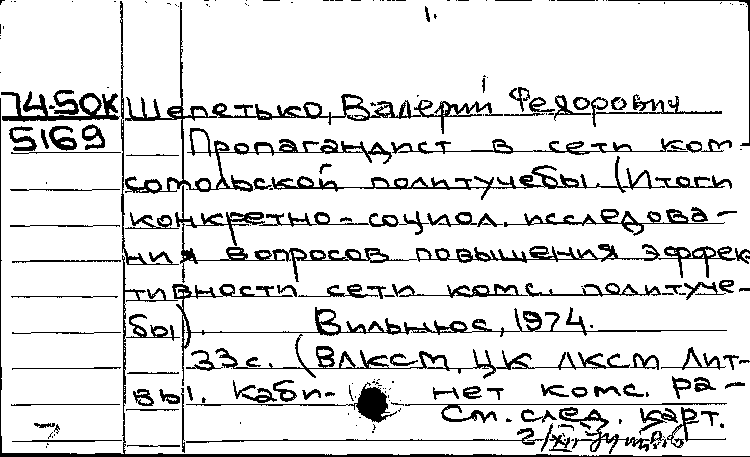 1.
74-50К Шепетько, Валерий Федорович
5169 Пропагандист в сети ком-
сомольской политучебы. (Итоги
конкретно-социол. исследова-
ния вопросов повышения эффек
тивности сети комс. политуче-
бы). Вильнюс, 1974.
33с. (ВЛКСМ. ЦК ЛКСМ Лит-
вы. Каби- нет комс. ра-
См. след. карт.